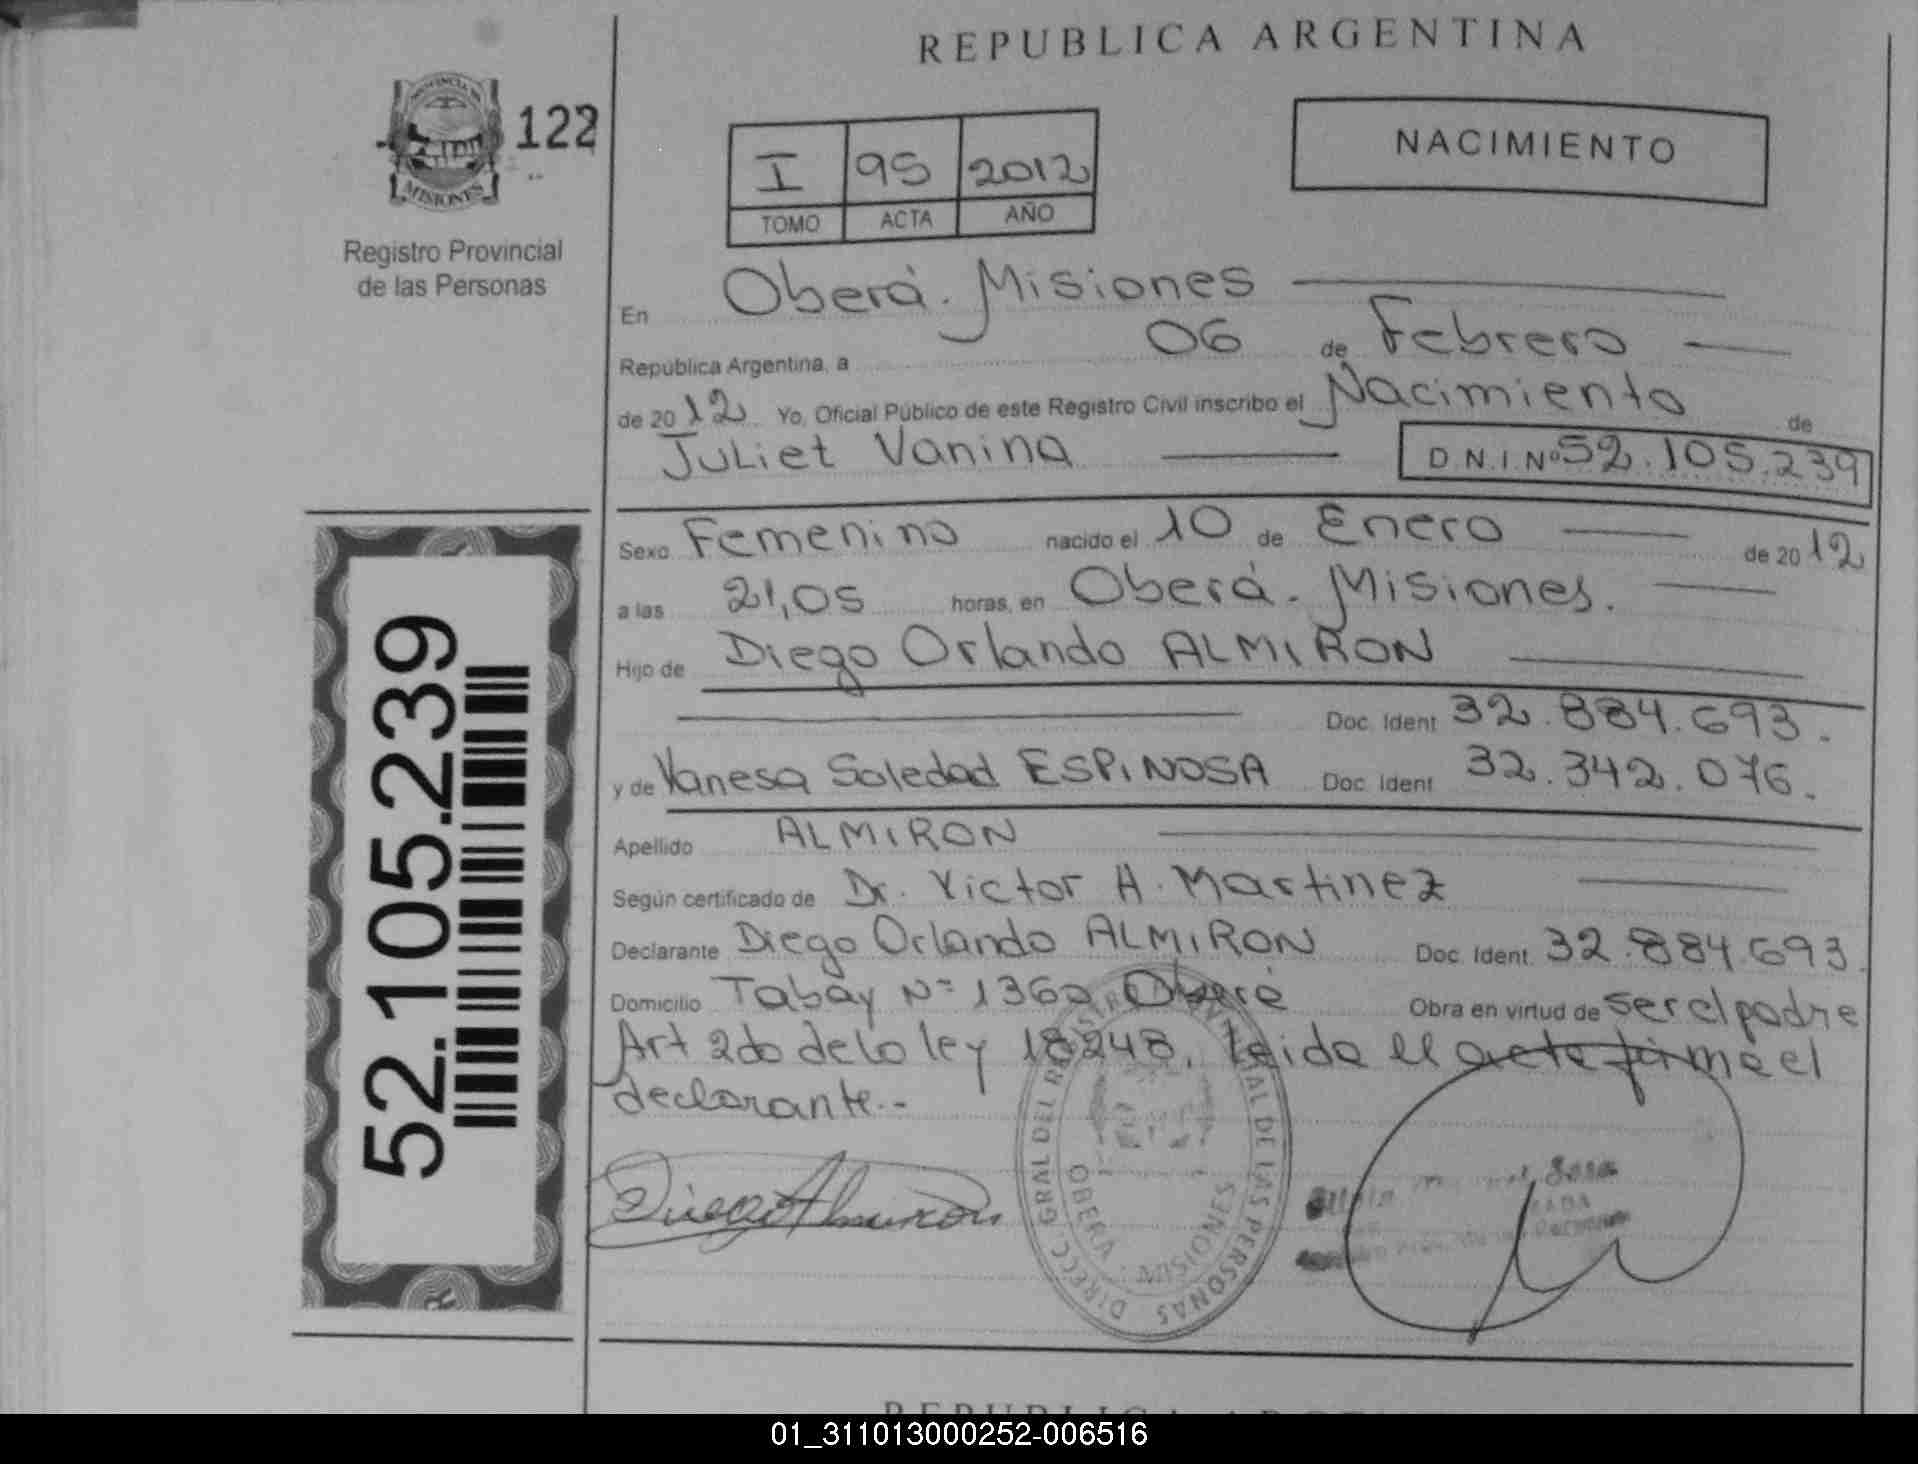 REPUBLICA ARGENTINA
PROVINCIA DE
MISIONES
122
Registro Provincial
de las Personas
I 95 2012
TOMO ACTA AÑO
NACIMIENTO
En Oberá. Misiones
República Argentina, a 06 de Febrero
de 2012 Yo, Oficial Público de este Registro Civil inscribo el Nacimiento de
Juliet Vanina D.N.I Nº 52.105.239
Sexo Femenino nacido el 10 de Enero de 2012
a las 21,05 horas, en Oberá. Misiones.
Hijo de Diego Orlando ALMIRON
Doc. Ident 32.884.693.
y de Vanesa Soledad ESPINOSA Doc. Ident 32.342.076.
Apellido ALMIRON
Según certificado de Dr. Victor H. Martinez
Declarante Diego Orlando ALMIRON Doc. Ident. 32.884.693.
Domicilio Tabay Nº 1360 Oberá Obra en virtud de ser el padre
Art 2do de la ley 18248. Leida el acta firma el
declarante.-
Diego Almiron
DIRECC. GRAL DEL REGISTRO PROVINCIAL DE LAS PERSONAS
OBERA MISIONES
Sosa
52.105.239
REPUBLICA ARGENTINA
01_311013000252-006516